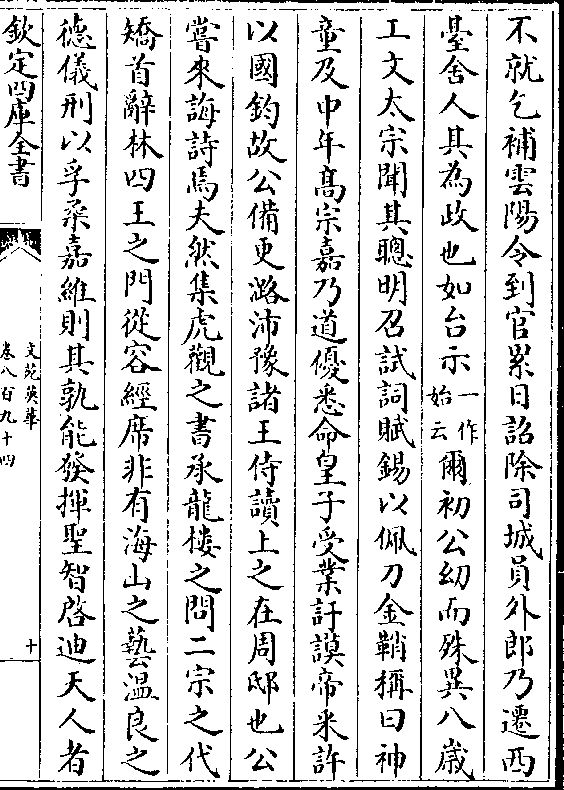 不就乞補雲陽令到官累日詔除司城員外郎乃遷西
臺舍人其為政也如台示一作始云爾初公幼而殊異八歲
工文太宗聞其聰明召試詞賦錫以佩刀金鞘稱曰神
童及中年高宗嘉乃道優悉命皇子受業訏謨帝采許
以國鈞故公備更潞沛豫諸王侍讀上之在周邸也公
嘗來誨詩焉夫然集虎觀之書承龍樓之問二宗之代
矯首辭林四王之門從容經席非有海山之藝溫良之
德儀刑以孚柔嘉維則其孰能發揮聖智啓迪天人者
欽定四庫全書
文苑英華
卷八百九十四
十